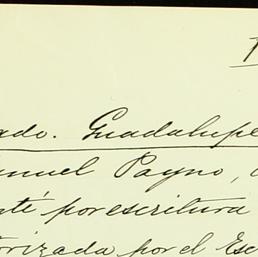 ado. Guadalupe
anuel Payno,
nte por escritura
torizada por el Esc